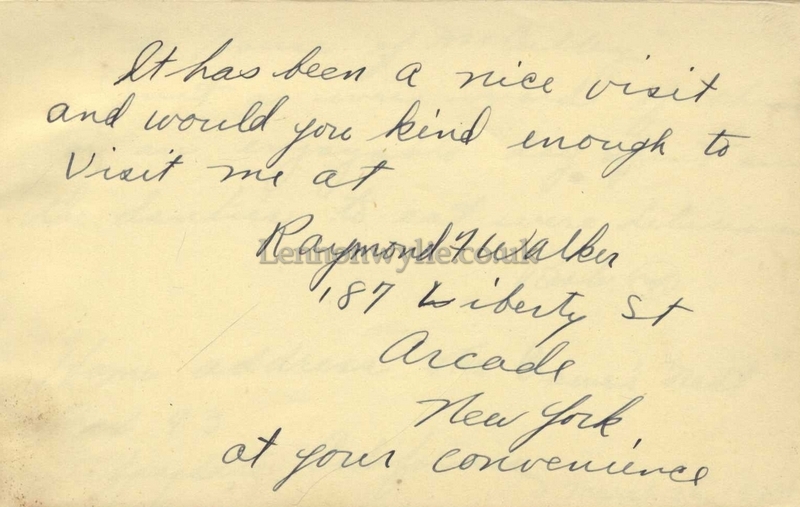 It has been a nice visit
and would you kind enough to
visit me at
Raymond F Walker
Lennonwylie.co.uk
187 Liberty St
Arcade
New York
at your convenience